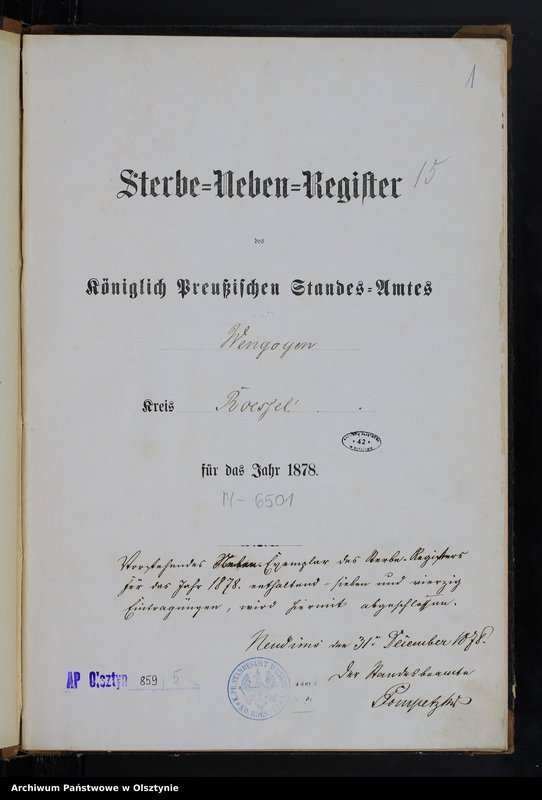 1
Sterbe=Neben=Register 15
des
Königlich Preußischen Standes=Amtes
Wengoyen
Kreis Roessel
42
für das Jahr 1878.
M-6501
Vorstehendes Neben-Exemplar des Sterbe-Registers
für das Jahr 1878 enthaltend sieben und vierzig
Eintragungen, wird hiermit abgeschlossen.
den 31. Dezember 1878.
Der Standesbeamte
AP Olsztyn 859 5
Archiwum Państwowe w Olsztynie
Archiwum Państwowe w Olsztynie